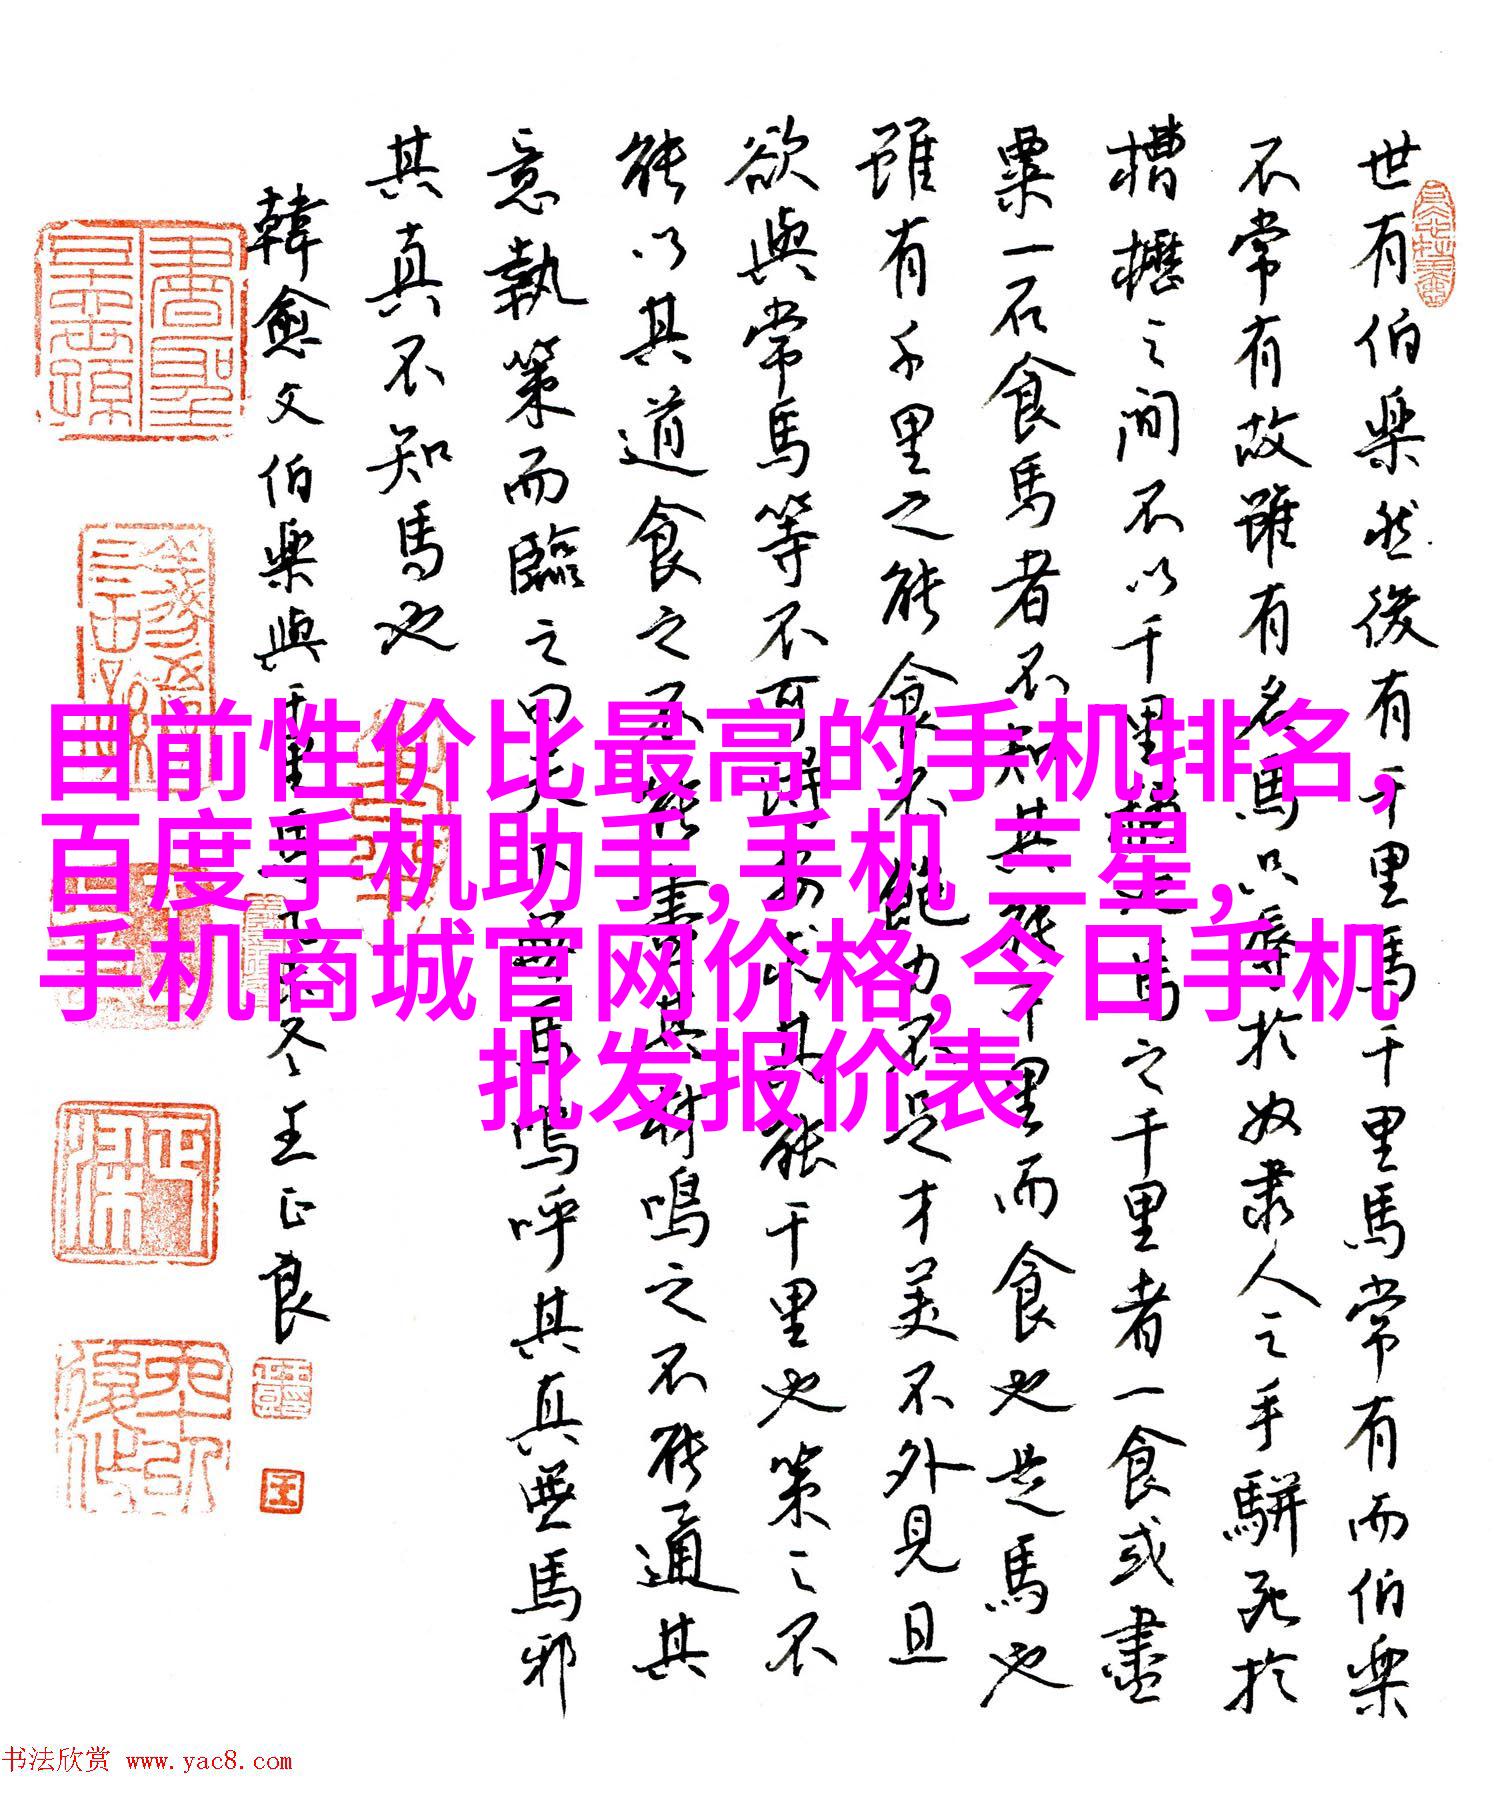 世有伯樂然後有千里馬千里馬常有而伯樂
不常有故雖有名馬只辱於奴隶人之手駢死於
槽櫪之间不以千里稱也馬之千里者一食或盡
粟一石食馬者不知其能千里而食也是馬也
雖有千里之能食不飽力不足才美不外見且
欲與常馬等不可得安求其能千里也策之不
能以其道食之不能盡其材鳴之不能通其
意執策而臨之曰天下無馬嗚呼其真無馬邪
其真不知馬也
韓愈文伯樂與千里馬冬王正良
王
目前性价比最高的手机排名,
百度手机助手,手机 三星,
手机商城官网价格,今日手机
批发报价表
书法欣赏 www.yac8.com